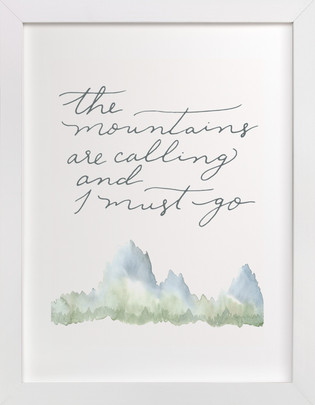 the
mountains
are calling
and
I must go